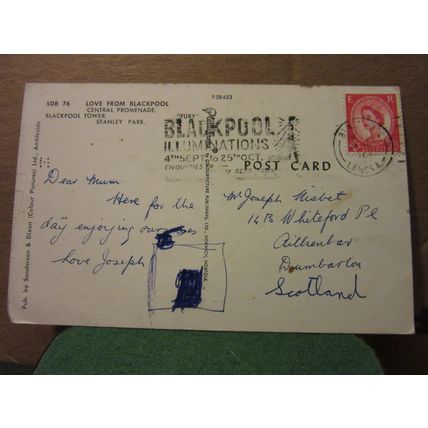 P58453
SDB 76 LOVE FROM BLACKPOOL
CENTRAL PROMENADE.
BLACKPOOL TOWER.
STANLEY PARK.
"FURY"
BLACKPOOL
ILLUMINATIONS
4TH SEPT. to 25TH OCT.
POST CARD
E R
LANCS.
Pub. by Sanderson & Dixon (Colour Pictures) Ltd., Ambleside
Dear Mum
Here for the
day enjoying
Love Joseph
Mr Joseph Nisbet
14B Whiteford Pl
Dumbarton
Scotland